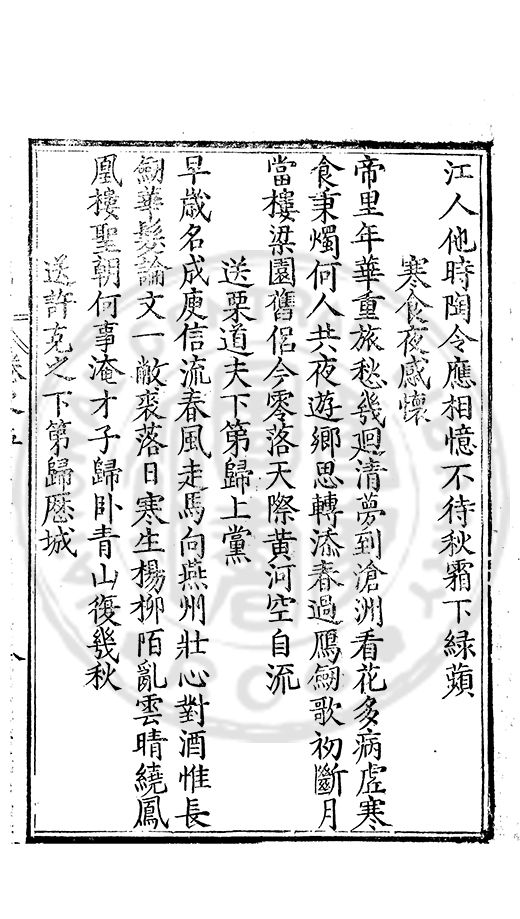 江人他時陶令應相憶不待秋霜下緑蘋
寒食夜感懷
帝里年華重旅愁幾廻清夢到滄洲看花多病虛寒
食秉燭何人共夜遊鄉思轉添春過鴈劒歌初斷月
當樓梁園舊侶今零落天際黄河空自流
送栗道夫下第歸上黨
早歲名成庾信流春風走馬向燕州壯心對酒惟長
劒華髮論文一敝裘落日寒生楊柳陌亂雲晴繞鳳
凰樓聖朝何事淹才子歸卧青山復幾秋
送許克之下第歸歷城
卷之五
八